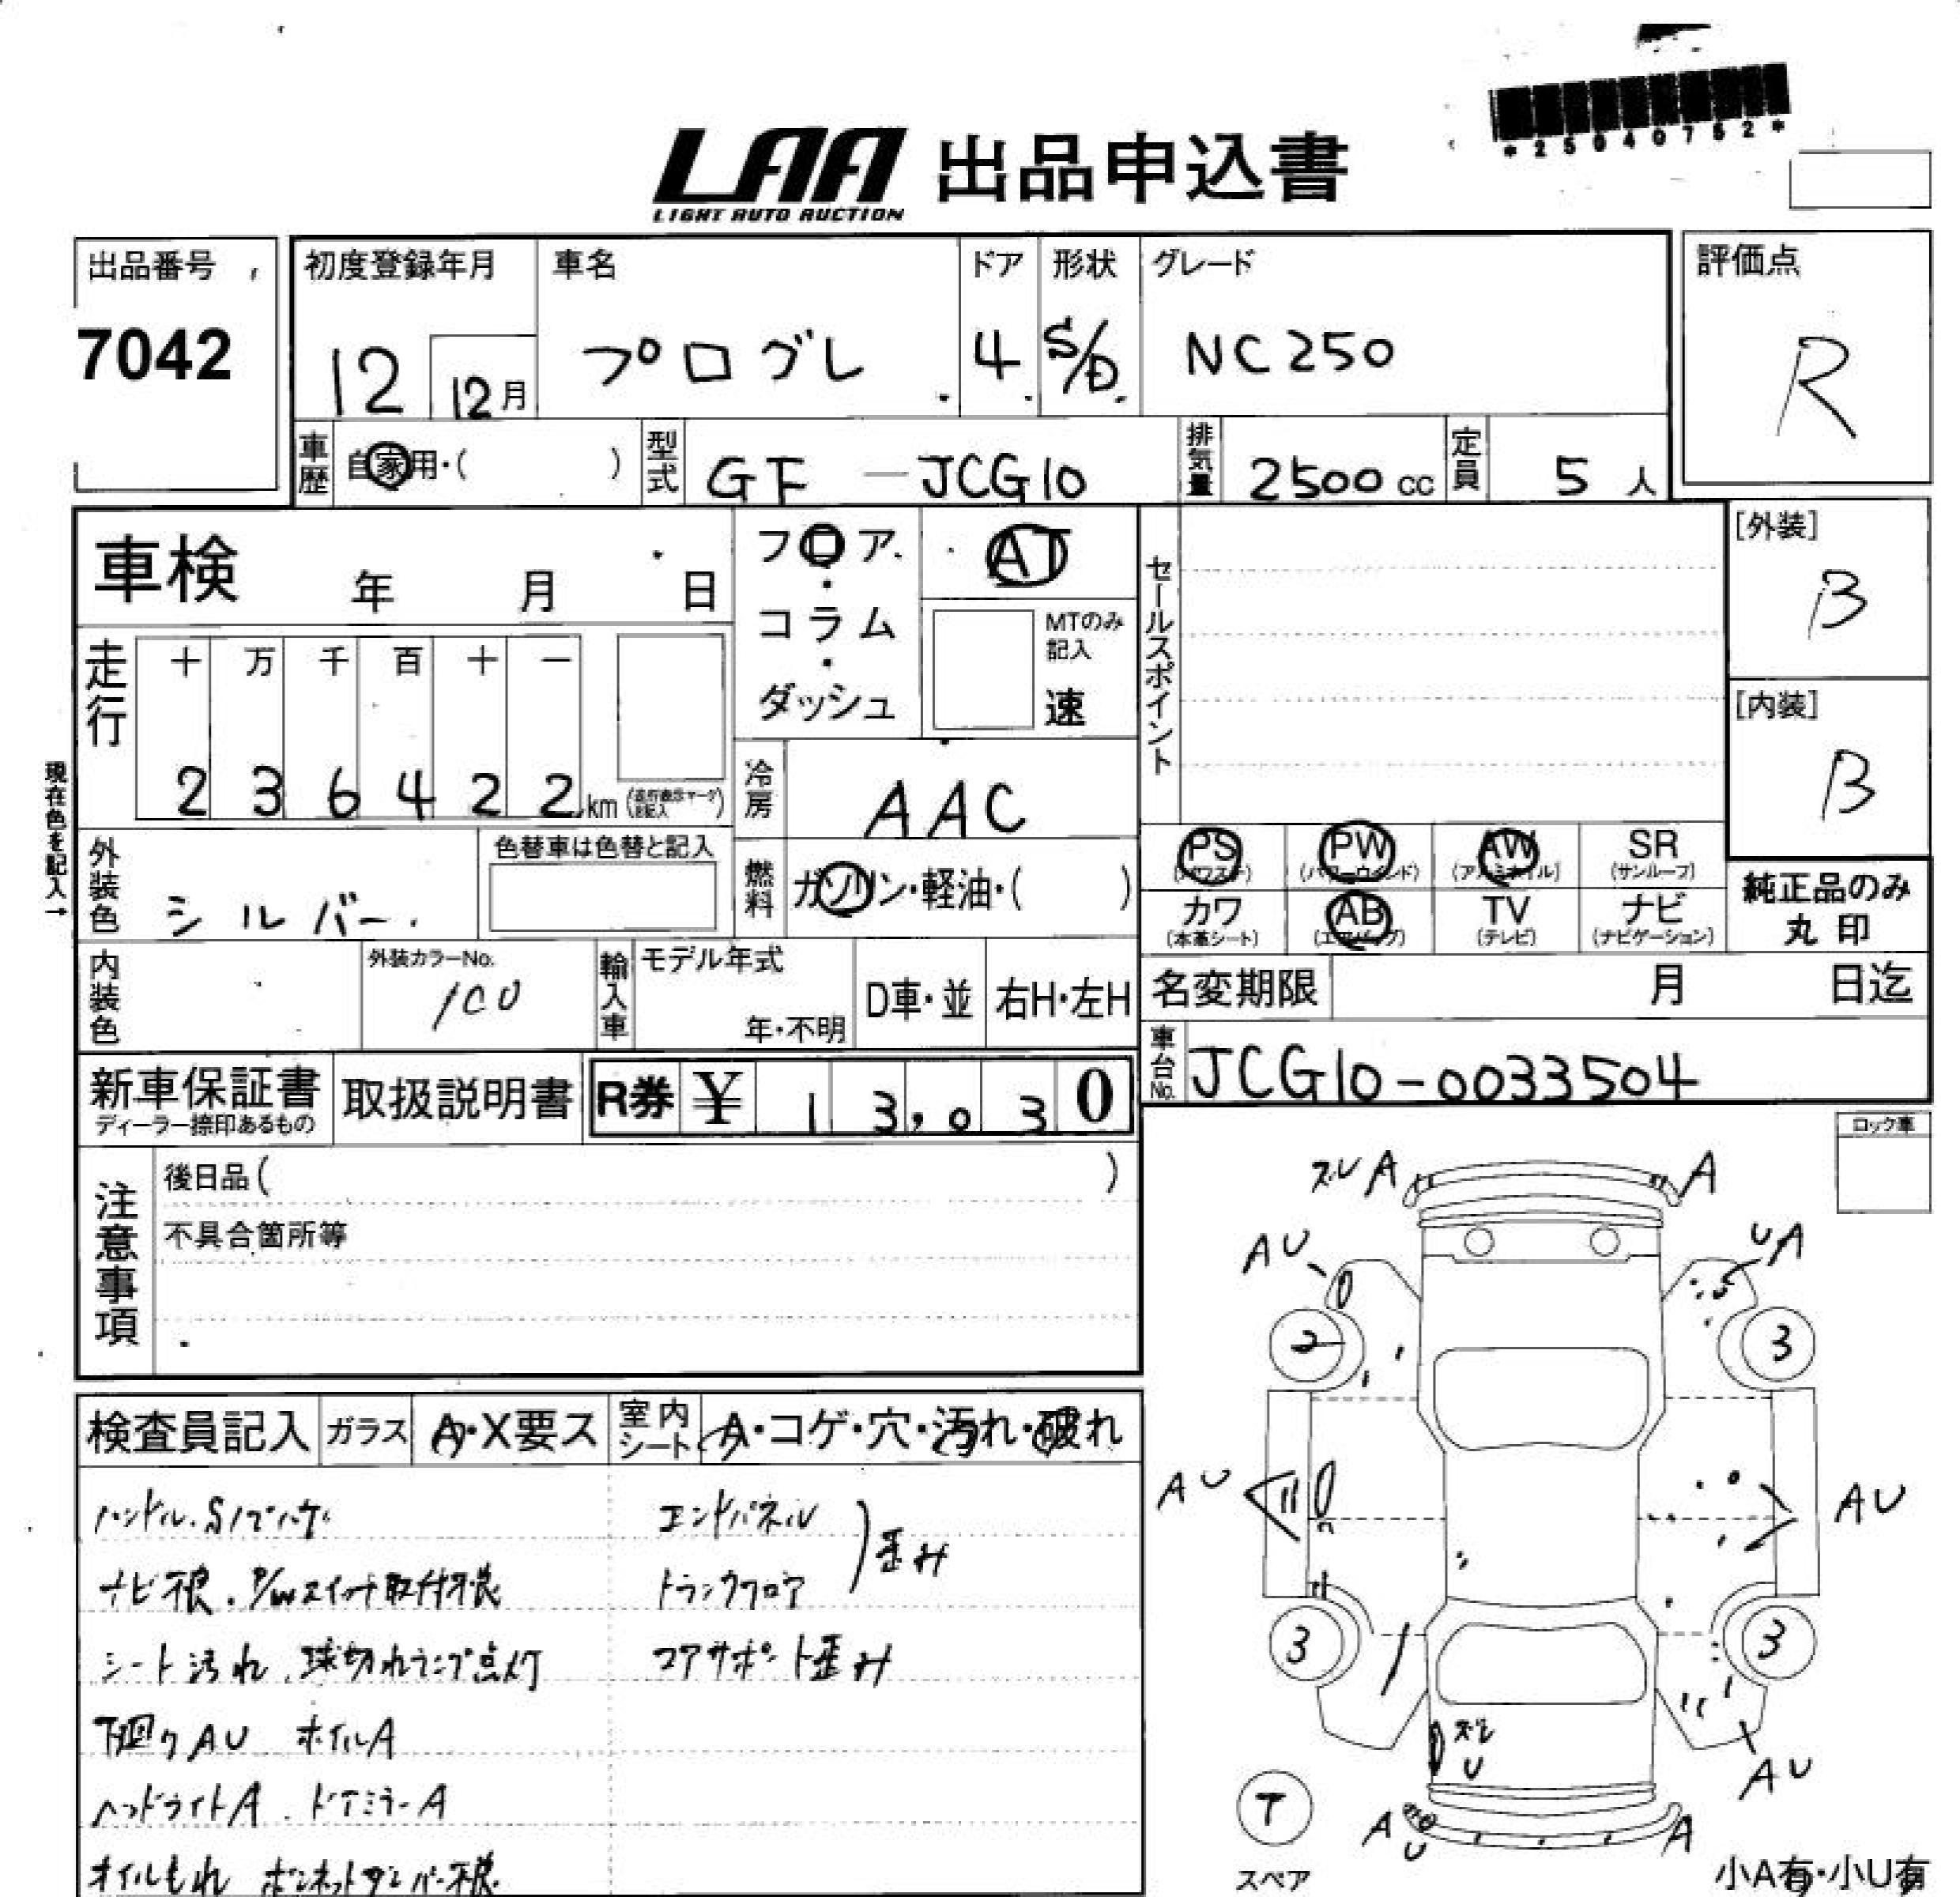 *25040752*
LAA 出品申込書
LIGHT AUTO AUCTION
出品番号
7042
初度登録年月
12 12月
車名
プログレ
ドア
4
形状
S/D
グレード
NC250
評価点
R
車歴 自家用・( )
型式 GF-JCG10
排気量 2500cc
定員 5人
車検 年 月 日
フロア・コラム・ダッシュ
AT
MTのみ記入
速
セールスポイント
[外装]
B
[内装]
B
現在色を記入→
走行
十 万 千 百 十 一
2 3 6 4 2 2 km
冷房 AAC
外装色 シルバー
色替車は色替と記入
燃料 ガソリン・軽油・( )
PS PW AW SR
(パワステ) (パワーウインド) (アルミホイル) (サンルーフ)
カワ AB TV ナビ
(本革シート) (エアバッグ) (テレビ) (ナビゲーション)
純正品のみ
丸印
内装色
外装カラーNo.
1C0
輸入車
モデル年式
年・不明
D車・並
右H・左H
名変期限 月 日迄
車台No. JCG10-0033504
新車保証書
ディーラー捺印あるもの
取扱説明書
R券 ¥ 13,030
ロック車
注意事項
後日品( )
不具合箇所等
検査員記入 ガラス A・X要ス 室内シート A・コゲ・穴・汚れ・破れ
エンドパネル
トランクフロア
歪み
ナビ不良. P/Wスイッチ取付不良
シート汚れ. 球切れランプ点灯
コアサポート歪み
下廻りAU ホイルA
ヘッドライトA. ドアミラーA
オイルもれ ボンネットダンパー不良
ズレ A A
AU UA
2 3
AU AU
3 3
ズレ
U
AU
T
スペア
A U A
小A有・小U有